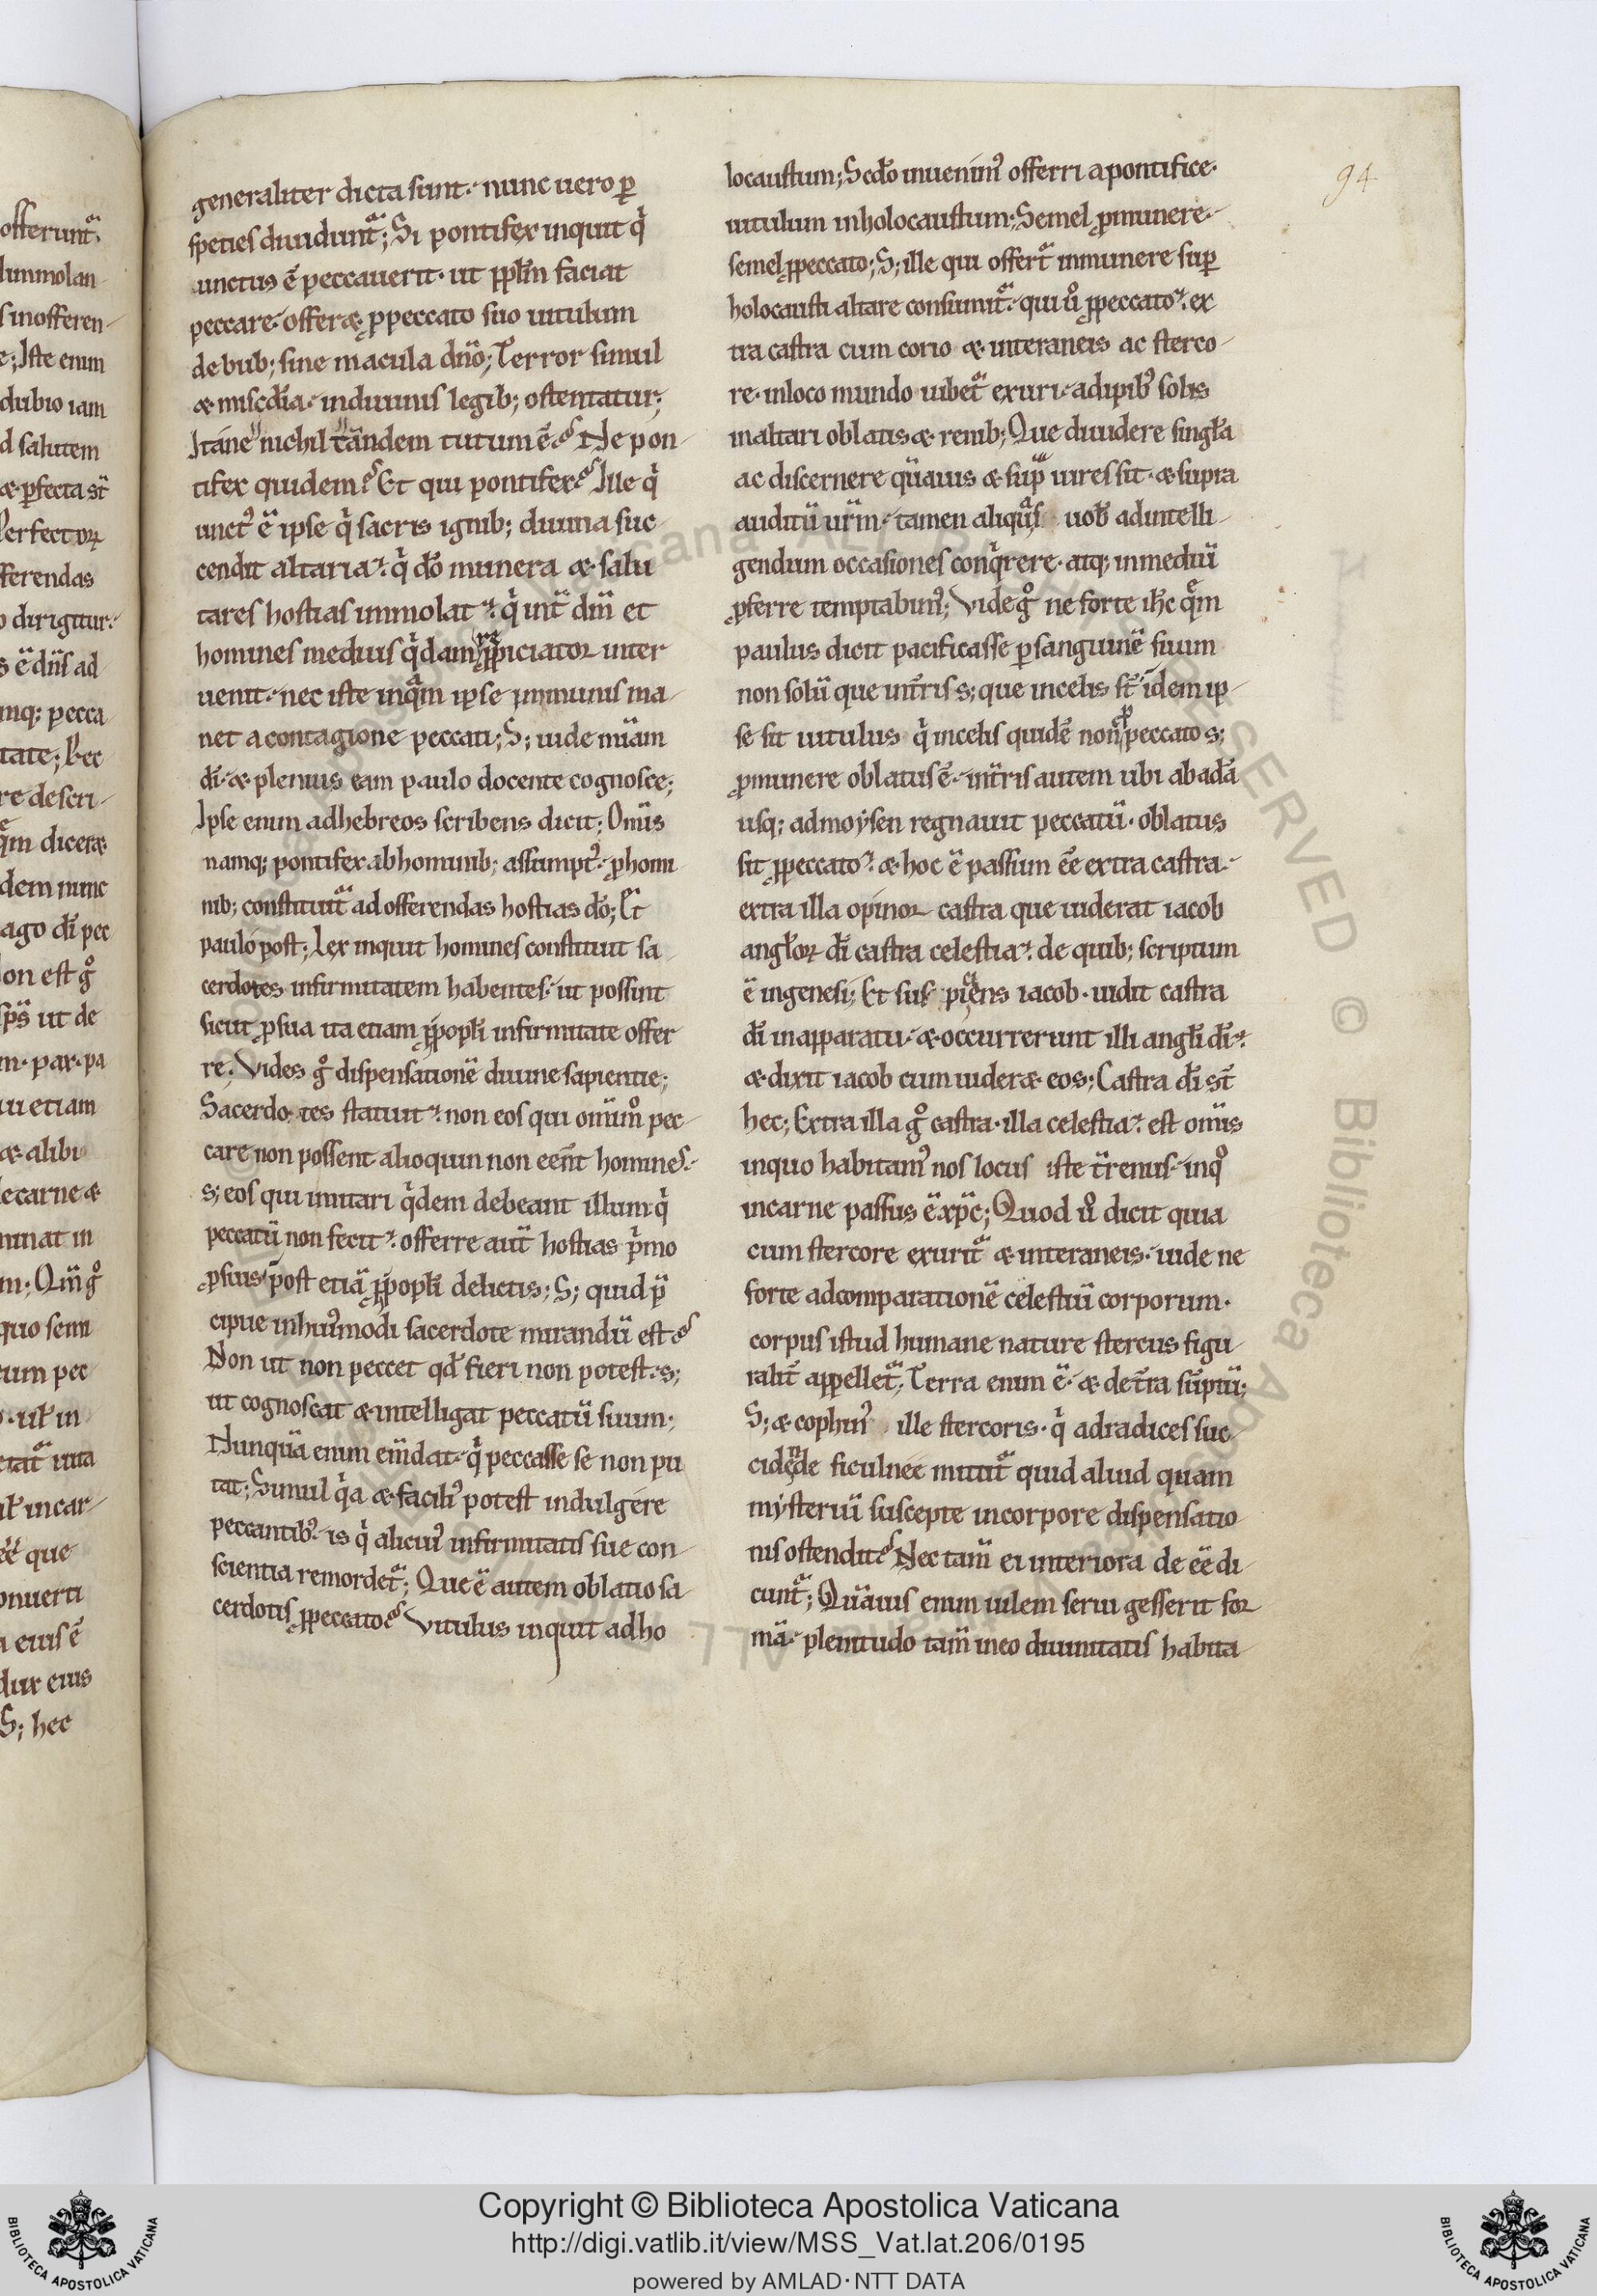 offeruntᷓ.
immolan-
s inofferen-
e; Iste enim
dubio iam
d salutem
æ ꝑfecta st̄
Perfectoꝝ
fferendas
o dirigitur.
s ē dn̄s ad
inq; pecca
tate; Nec
re descri-
diceræ
dem nunc
ago dī pec
on est gͦ
ut de
m. par. pa
iu etiam
æ alibi
e carne æ
minat in
quo semi
cum pec
in
uita
incar-
ēē que
onuerti
eius ē
dux eius
S; hec
generaliter dicta sunt. nunc uero ꝑ
speties diuiduntᷓ; Si pontifex inquit qͥ
unctus ē peccauerit. ut ꝓplm̄ faciat
peccare. offeræ ꝓ peccato suo uitulum
de bub; sine macula dn̄o; Terror simul
æ misc̄dia. indiuinis legib; ostentatur;
Itane nichil tandem tutum ē? Ne pon-
tifex quidem? Et qui pontifex? Ille qͥ
unctꝰ ē ipse qͥ sacris ignib; diuina suc-
cendit altaria. qͥ dō munera æ salu
tares hostias immolat. qͥ int̄ dm̄ et
homines mediuis qͥdam re ꝓpiciator inter
uenit. nec iste inqᷓm ipse immunis ma-
net a contagione peccati; S; uide miām
dī. æ plenius eam paulo docente cognosce;
Ipse enim adhebreos scribens dicit; Omīs
namq; pontifex ab hominib; assumptꝰ. ꝓ homi
nib; constituitᷓ ad offerendas hostias dō; Et
paulo post; Lex inquit homines constituit sa
cerdotes infirmitatem habentes. ut possint
sicut ꝓ sua ita etiam ꝓ popłi infirmitate offer
re; Vides gͦ dispensationē diuine sapientie;
Sacerdotes statuit. non eos qui omīmͦ pec-
care non possent alioquin non eēnt homines.
s; eos qui imitari qͥdem debeant illum qͥ
peccatū non fecit. offerre aut̄ hostias pͥmo
ꝓ suis post etiā ꝓ popłi delictis; S; quid p̄
cipue in huiꝰmodi sacerdote mirandū est?
Non ut non peccet qđ fieri non potest. s;
ut cognoscat æ intelligat peccatū suum;
Nunquā enim em̄dat. qͥ peccasse se non pu
tat; Simul qͥa æ faciliꝰ potest indulgere
peccantibꝰ. is qͥ alicuiꝰ infirmitatis sue con-
scientia remordetᷓ; Que ē autem oblatio sa-
cerdotis ꝓ peccato? Vitulus inquit ad ho
locaustum; Scdō inuenimꝰ offerri a pontifice.
uitulum in holocaustum; Semel ꝓ munere.
semel ꝓ peccato; S; ille qui offertᷓ in munere suꝑ
holocausti altare consumitᷓ. qui uͦ ꝓ peccato. ex
tra castra cum corio æ interaneis ac sterco-
re. in loco mundo iubetᷓ exuri. adipibꝰ solis
in altari oblatis æ renib; Que diuidere singła
ac discernere quāuis æ suꝑ uires sit. æ supra
auditū urm̄. tamen aliqᷓs uob̄ ad intelli-
gendum occasiones conqͥrere. atq; in mediū
ꝓferre temptabimꝰ; Vide gͦ ne forte ih̄c qͤm
paulus dicit pacificasse ꝑ sanguinē suum
non solū que int̄ris s; que incelis st̄ idem ip-
se sit uitulus qͥ incelis quidē non ꝓ peccato s;
ꝓ munere oblatus ē. int̄ris autem ubi ab adā
usq; ad moysen regnauit peccatū. oblatus
sit ꝓ peccato. æ hoc ē passum eē extra castra.
extra illa opinor castra que uiderat iacob
angłoꝝ dī castra celestia. de quib; scriptum
ē in genesi; Et suspiciens iacob. uidit castra
dī in apparatu. æ occurrerunt illi angłi dī.
æ dixit iacob cum uideræ eos; Castra dī st̄
hec; Extra illa gͦ castra. illa celestia. est omīs
in quo habitamꝰ nos locus iste t̄renus. in qͦ
in carne passus ē xp̄c; Quod uͦ dicit quia
cum stercore exuritᷓ æ interaneis. uide ne
forte ad comparationē celestiū corporum.
corpus istud humane nature stercus figu-
ralit̄ appelletᷓ; Terra enim ē. æ de t̄ra sūptū;
S; æ cophinꝰ ille stercoris. qͥ ad radices suc-
cidende ficulnee mititᷓ quid aliud quam
mysteriū suscepte in corpore dispensatio
nis ostendit? Nec tam̄ ei interiora de eē di-
cuntᷓ; Quāuis enim uilem serui gesserit for
mā. plenitudo tam̄ in eo diuinitatis habita-
94
Copyright © Biblioteca Apostolica Vaticana
http://digi.vatlib.it/view/MSS_Vat.lat.206/0195
powered by AMLAD·NTT DATA
BIBLIOTECA APOSTOLICA VATICANA
BIBLIOTECA APOSTOLICA VATICANA